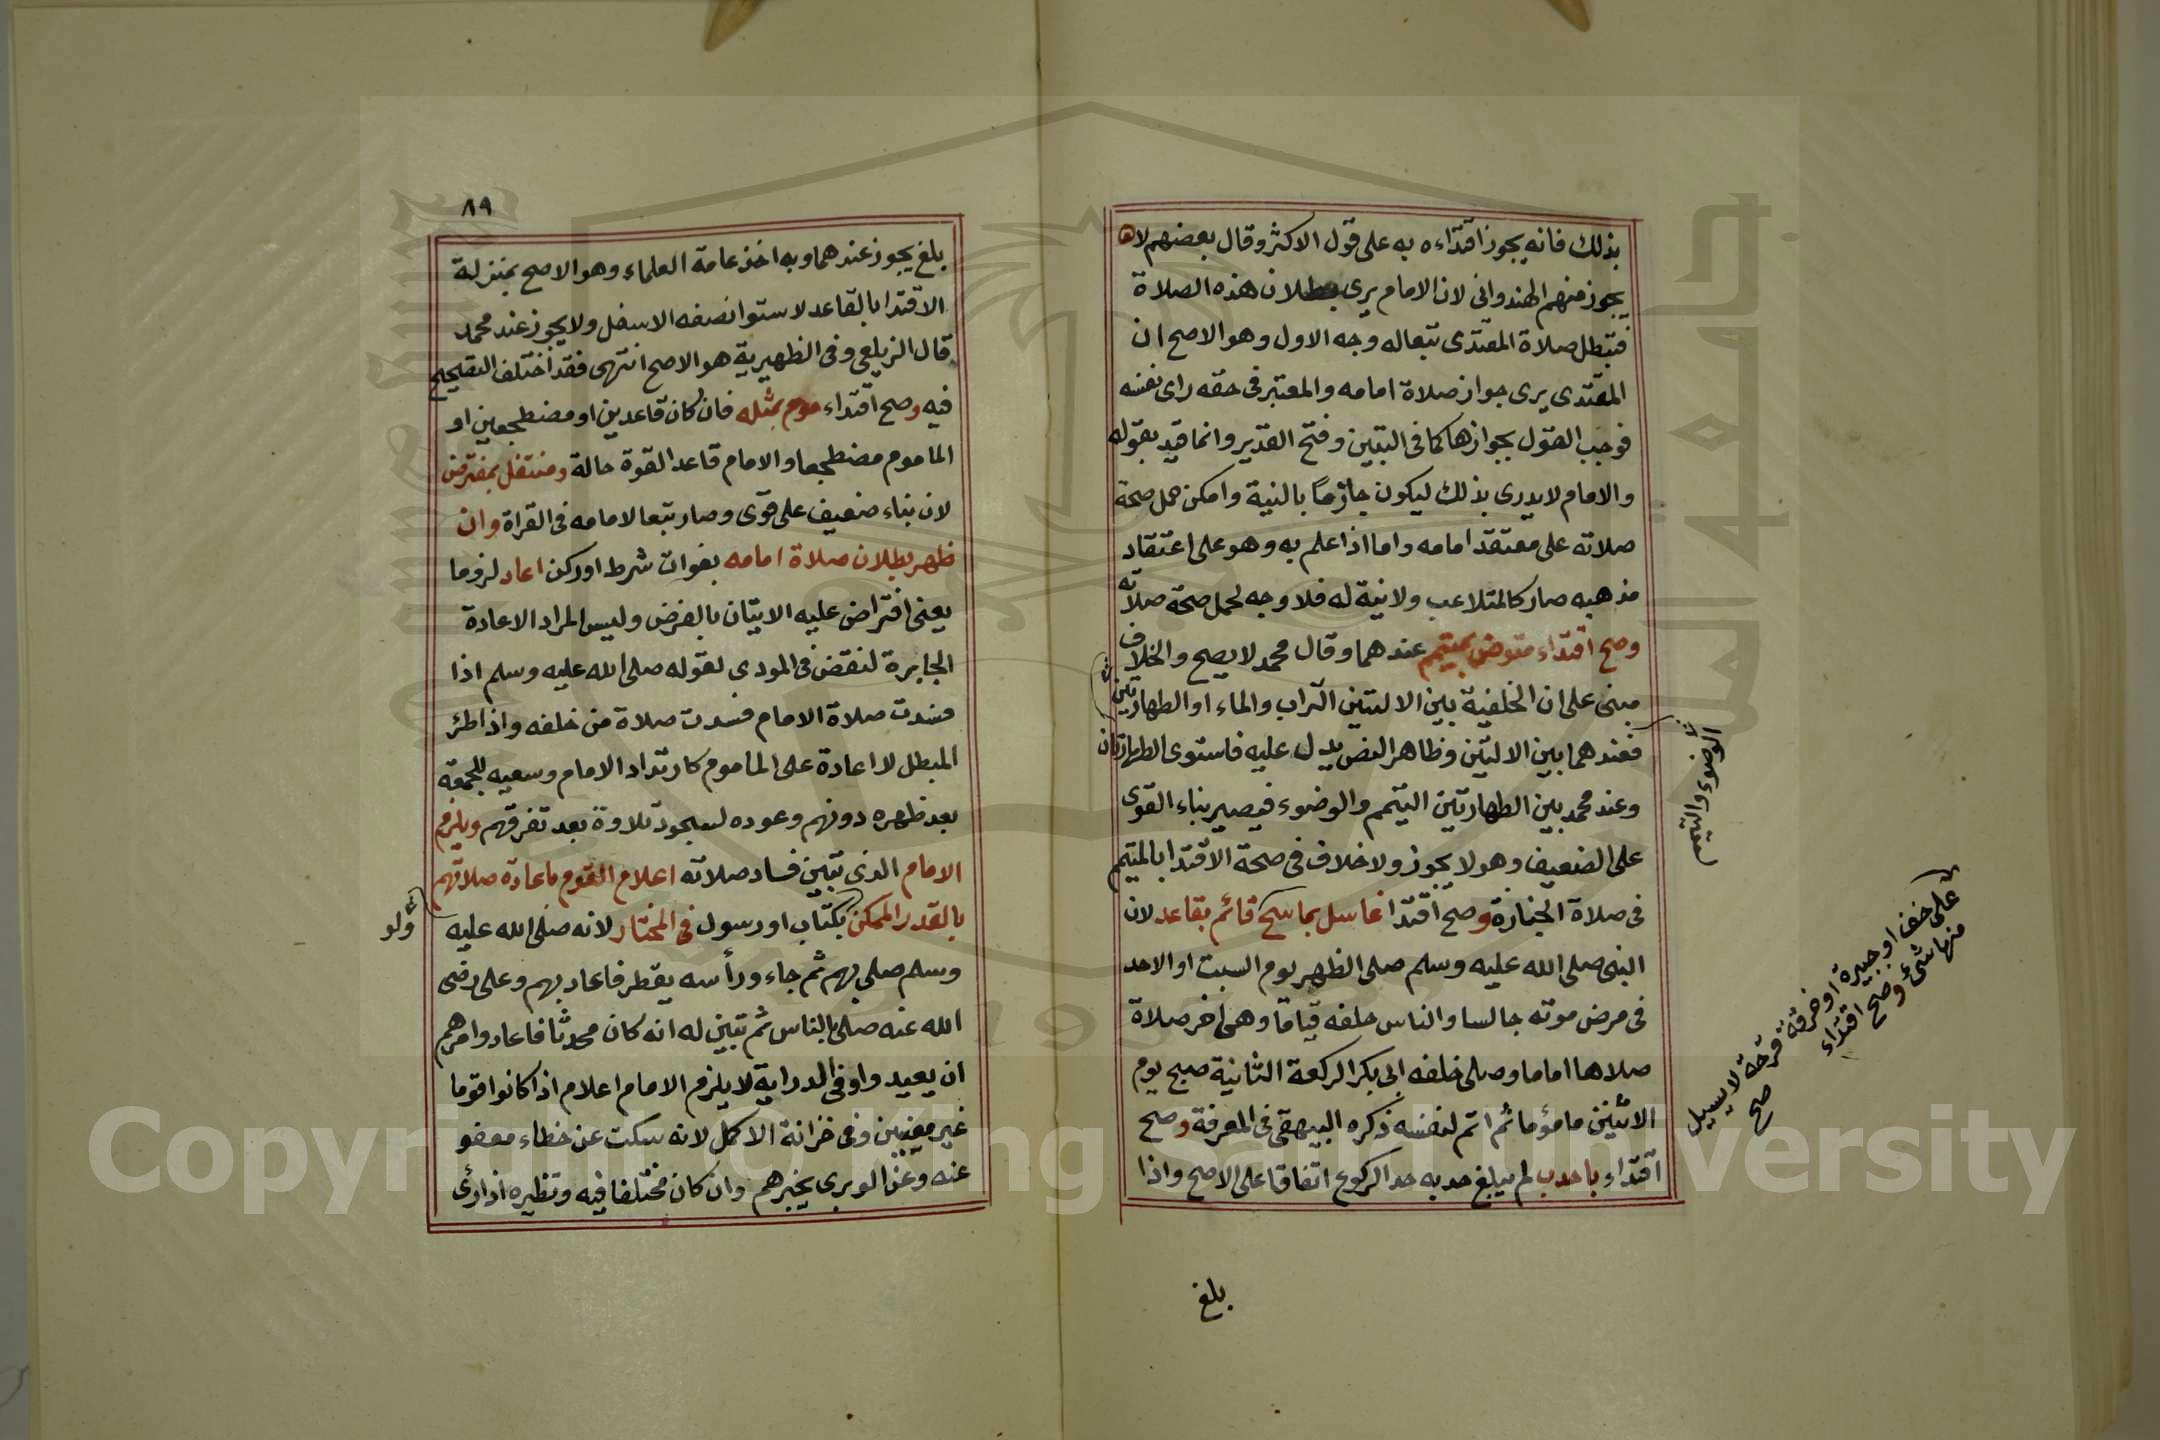 بذلك فانه يجوز اقتداءه به على قول الاكثر وقال بعضهم لا
يجوز منهم الهندوانى لان الامام يرى بطلان هذه الصلاة
فتبطل صلاة المقتدى تبعا له وجه الاول وهو الاصح ان
المقتدى يرى جواز صلاة امامه والمعتبر فى حقه راى نفسه
فوجب القول بجوازها كما فى التبيين وفتح القدير وانما قيد بقوله
والامام لا يدرى بذلك ليكون جازما بالنية وامكن حمل صحة
صلاته على معتقد امامه واما اذا علم به وهو على اعتقاد
مذهبه صار كالمتلاعب ولا نية له فلا وجه لحمل صحة صلاته
وصح اقتداء متوض بمتيمم عندهما وقال محمد لا يصح والخلاف
مبنى على ان الخلفية بين الالتين التراب والماء او الطهارتين
فعندهما بين الالتين وظاهر النص يدل عليه فاستوى الطهارتان
وعند محمد بين الطهارتين التيمم والوضوء فيصير بناء القوى
على الضعيف وهو لا يجوز ولا خلاف فى صحة الاقتدا بالمتيمم
فى صلاة الجنازة وصح اقتدا غاسل بماسح قائم بقاعد لان
النبى صلى الله عليه وسلم صلى الظهر يوم السبت او الاحد
فى مرض موته جالسا والناس خلفه قياما وهى اخر صلاة
صلاها اماما وصلى خلف ابى بكر الركعة الثانية صبح يوم
الاثنين ماموما ثم اتم لنفسه ذكره البيهقى فى المعرفة وصح
اقتداء باحدب لم يبلغ حدبه حد الركوع اتفاقا على الاصح واذا
الوضوء والتيمم
على خف او جبيرة او خرقة قرحة لا يسيل
منها شئ وصح اقتداء
صح
بلغ
٨٩
بلغ يجوز عندهما وبه اخذ عامة العلماء وهو الاصح بمنزلة
الاقتدا بالقاعد لاستوا نصفه الاسفل ولا يجوز عند محمد
قال الزيلعى وفى الظهيرية هو الاصح انتهى فقد اختلف التصحيح
فيه وصح اقتداء موم بمثله فان كان قاعدين او مضطجعين او
الماموم مضطجعا والامام قاعد القوة حالة ومتنفل بمفترض
لان بناء ضعيف على قوى وصار تبعا لامامه فى القراة وان
ظهر بطلان صلاة امامه بفوات شرط او ركن اعاد لزوما
يعنى افتراض عليه الاتيان بالفرض وليس المراد الاعادة
الجابرة لنقض فى المودى لقوله صلى الله عليه وسلم اذا
فسدت صلاة الامام فسدت صلاة من خلفه واذا طرئ
المبطل لا اعادة على الماموم كارتداد الامام وسعيه للجمعة
بعد ظهره دونهم وعوده لسجود تلاوة بعد تفرقهم ويلزم
الامام الذى تبين فساد صلاته اعلام القوم باعادة صلاتهم
بالقدر الممكن بكتاب او رسول فى المختار لانه صلى الله عليه
ولو
وسلم صلى بهم ثم جاء وراسه يقطر فاعاد بهم وعلى رضى
الله عنه صلى بالناس ثم تبين له انه كان محدثا فاعاد وامرهم
ان يعيدوا وفى الدراية لا يلزم الامام اعلام اذا كانوا قوما
غير معينين وفى خزانة الاكمل لانه سكت عن خطاء معفو
عنه وعن الوبرى يخبرهم وان كان مختلفا فيه ونظيره اذا رئى
Copyright © King Saud University